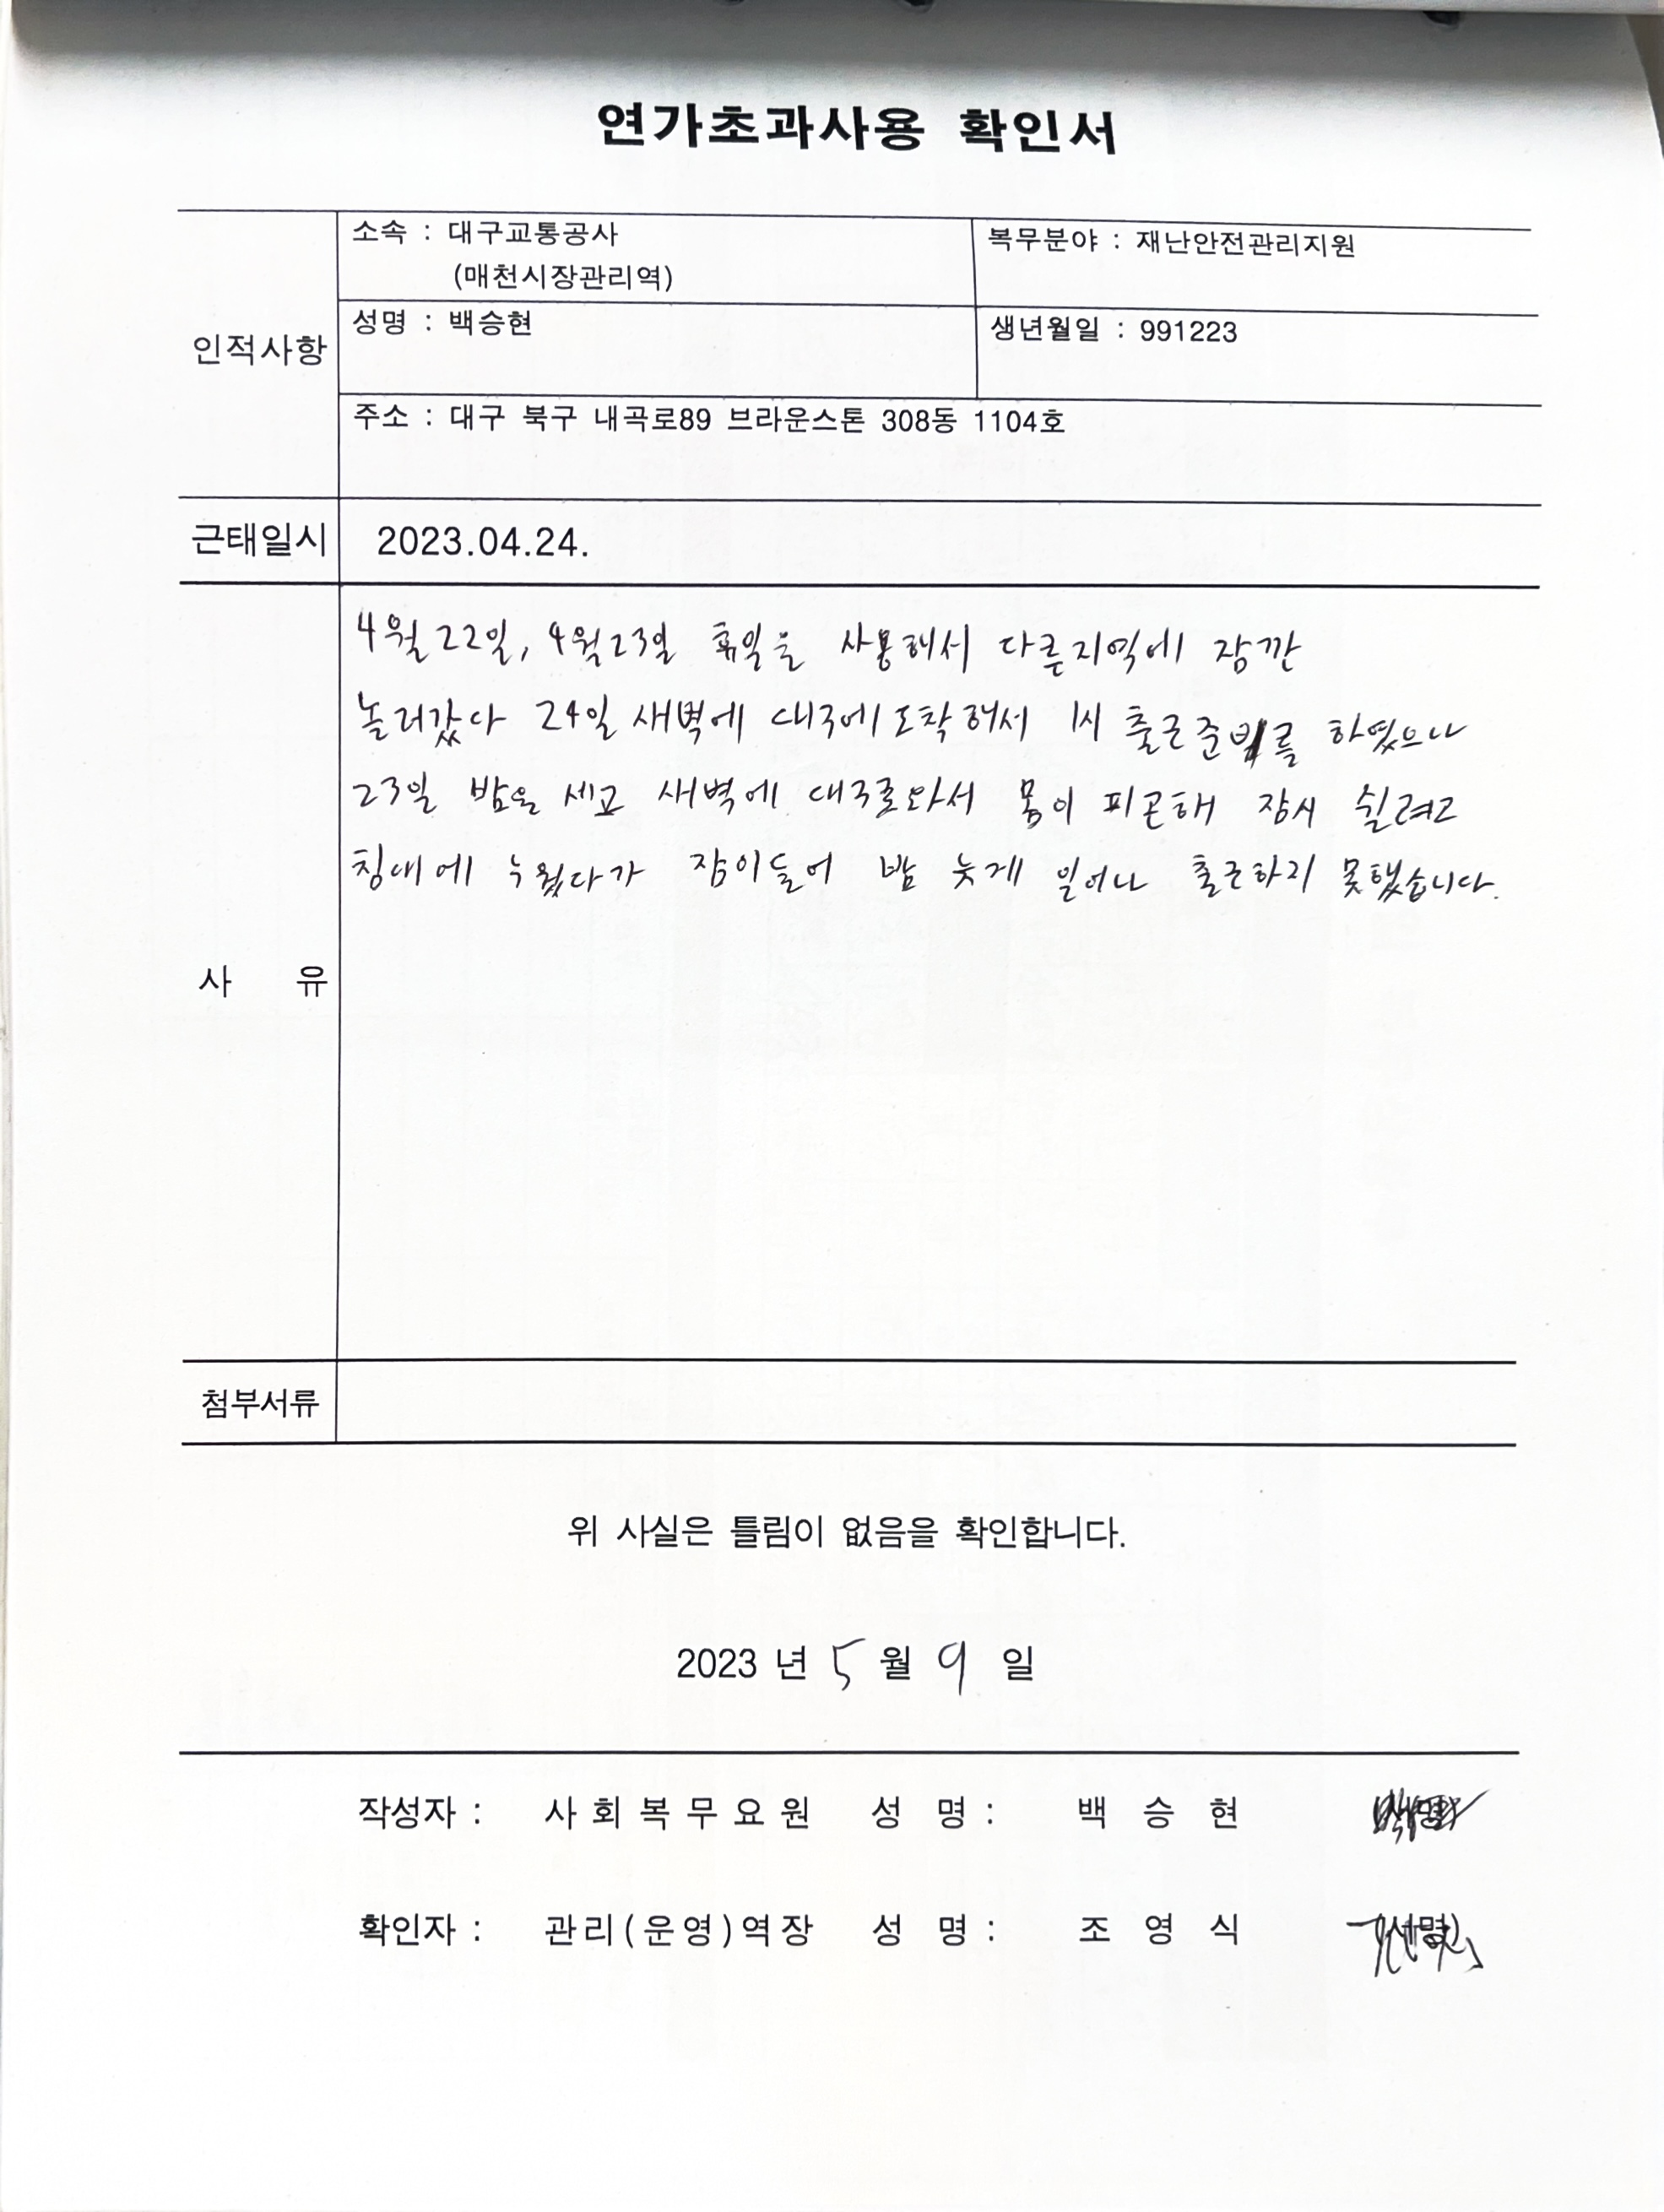 연가초과사용 확인서
인적사항
소속 : 대구교통공사
(매천시장관리역)
복무분야 : 재난안전관리지원
성명 : 백승현
생년월일 : 991223
주소 : 대구 북구 내곡로89 브라운스톤 308동 1104호
근태일시
2023.04.24.
사 유
4월22일, 4월23일 휴일을 사용해서 다른지역에 잠깐
놀러갔다 24일 새벽에 대구에 도착해서 1시 출근준비를 하였으나
23일 밤을 세고 새벽에 대구로와서 몸이 피곤해 잠시 쉴려고
침대에 누웠다가 잠이들어 밤 늦게 일어나 출근하지 못했습니다.
첨부서류
위 사실은 틀림이 없음을 확인합니다.
2023 년 5 월 9 일
작성자 : 사 회 복 무 요 원 성 명 : 백 승 현
확인자 : 관리(운영)역장 성 명 : 조 영 식 (서명)